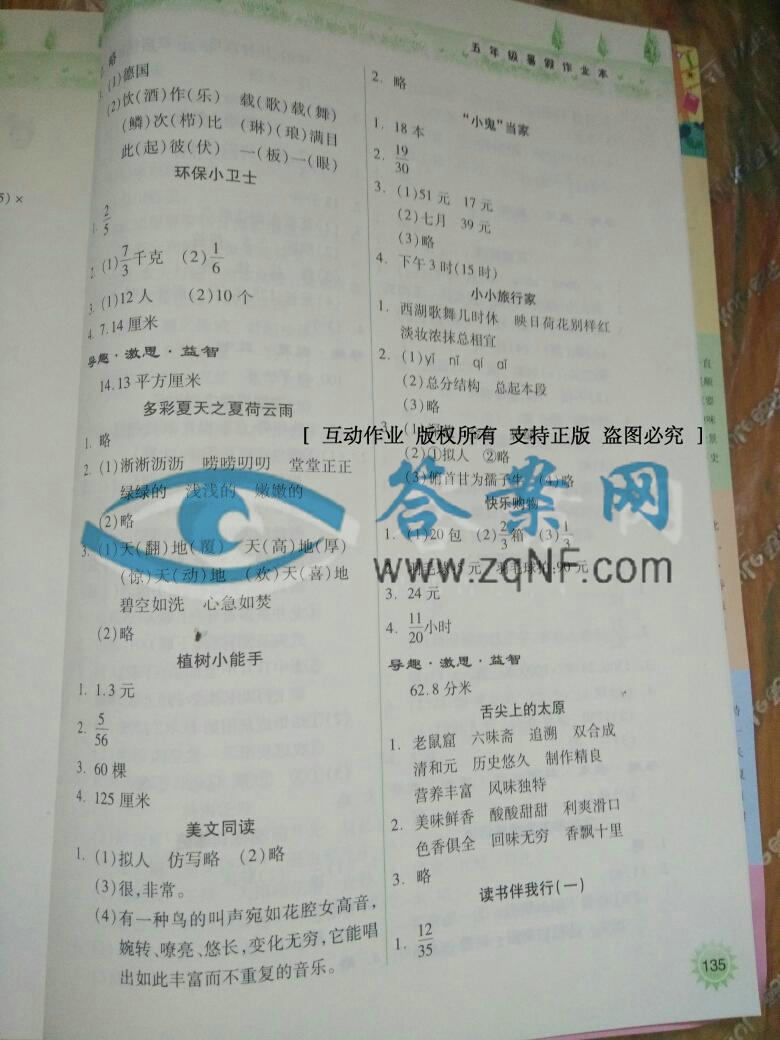 五年级暑假作业本
略
(1)德国
(2)饮(酒)作(乐) 载(歌)载(舞)
(鳞)次(栉)比 (琳)(琅)满目
此(起)彼(伏) 一(板)一(眼)
环保小卫士
1. 2/5
2. (1)7/3千克 (2)1/6
3. (1)12人 (2)10个
4. 7.14厘米
导趣·激思·益智
14.13平方厘米
多彩夏天之夏荷云雨
1. 略
2. (1)淅淅沥沥 唠唠叨叨 堂堂正正
绿绿的 浅浅的 嫩嫩的
(2)略
3. (1)天(翻)地(覆) 天(高)地(厚)
(惊)天(动)地 (欢)天(喜)地
碧空如洗 心急如焚
(2)略
植树小能手
1. 1.3元
2. 5/56
3. 60棵
4. 125厘米
美文同读
1. (1)拟人 仿写略 (2)略
(3)很,非常。
(4)有一种鸟的叫声宛如花腔女高音,
婉转、嘹亮、悠长,变化无穷,它能唱
出如此丰富而不重复的音乐。
2. 略
“小鬼”当家
1. 18本
2. 19/30
3. (1)51元 17元
(2)七月 39元
(3)略
4. 下午3时(15时)
小小旅行家
1. 西湖歌舞几时休 映日荷花别样红
淡妆浓抹总相宜
2. (1)yǐ nī qí āi
(2)总分结构 总起本段
(3)略
[ 互动作业 版权所有 支持正版 盗图必究 ]
(2)①拟人 ②略
(3)俯首甘为孺子牛 (4)略
快乐购物
1. (1)20包 (2)2/3箱 (3)1/3
答案网
www.zqNF.com
3. 24元
4. 11/20小时
导趣·激思·益智
62.8分米
舌尖上的太原
1. 老鼠窟 六味斋 追溯 双合成
清和元 历史悠久 制作精良
营养丰富 风味独特
2. 美味鲜香 酸酸甜甜 利爽滑口
色香俱全 回味无穷 香飘十里
3. 略
读书伴我行(一)
1. 12/35
135